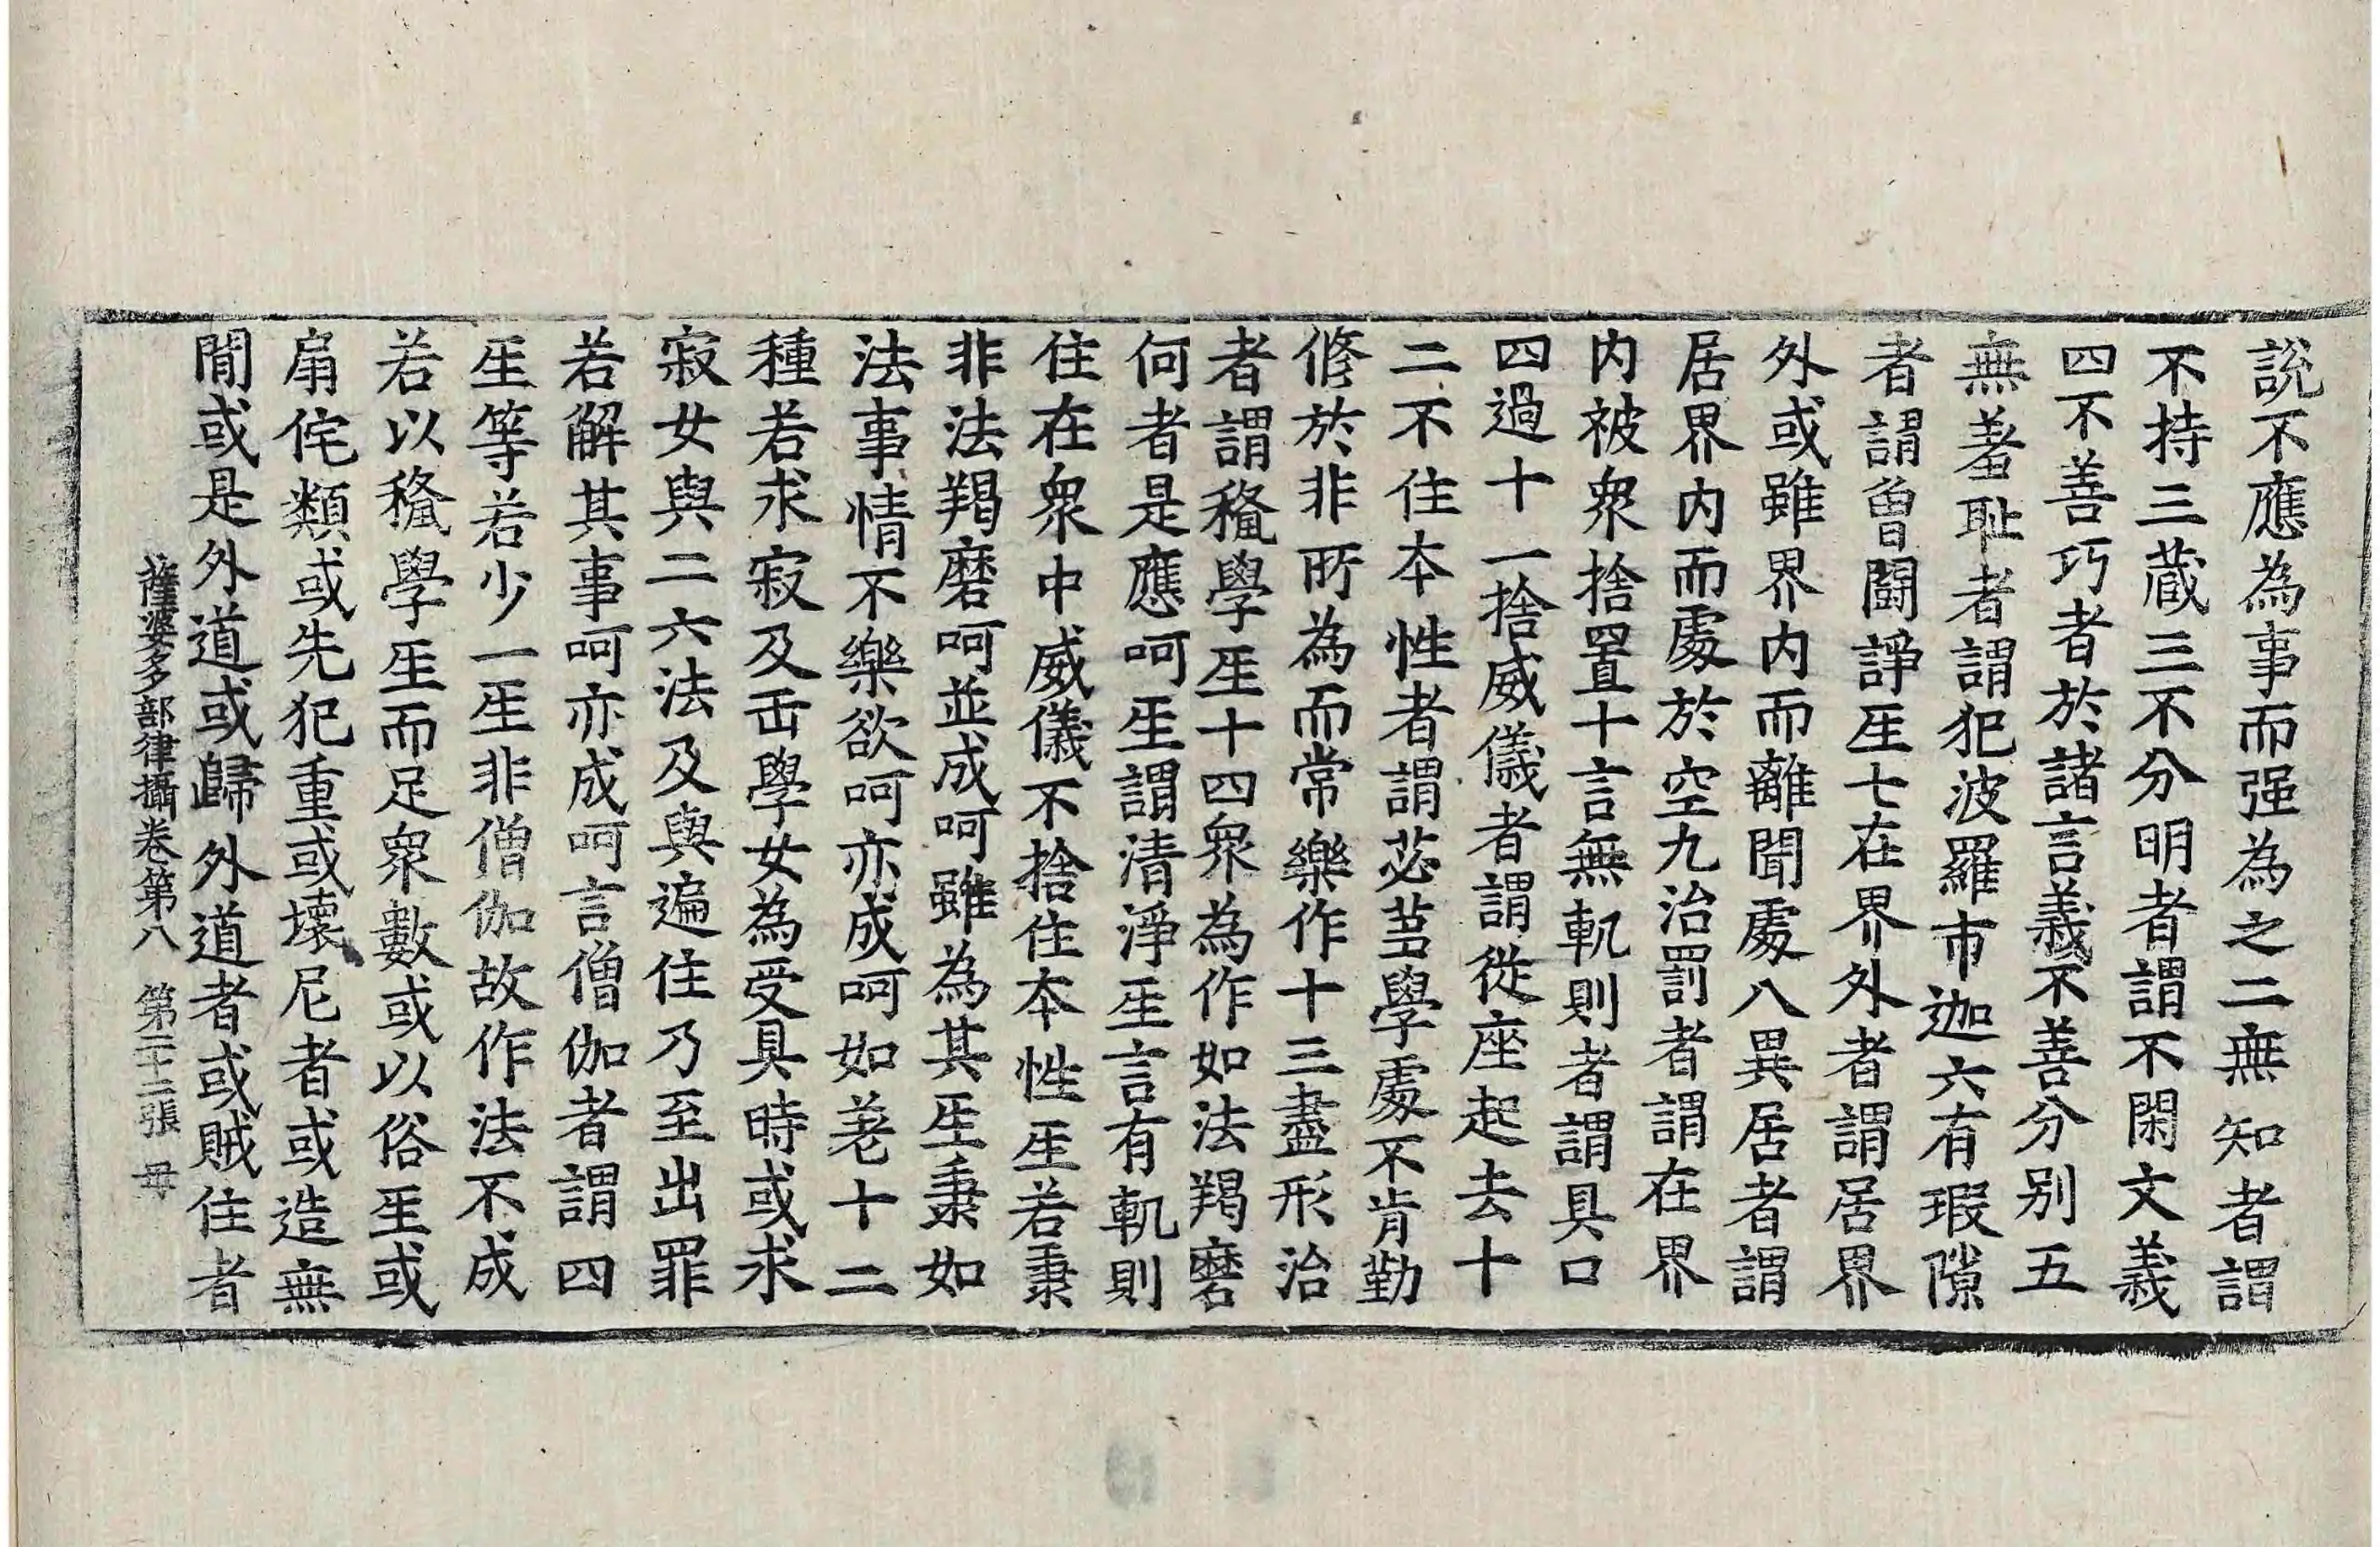 說不應為事而强為之二無知者謂
不持三蔵三不分明者謂不閑文義
四不善巧者於諸言義不善分别五
無羞耻者謂犯波羅市迦六有瑕隙
者謂曾闘諍𤯔七在界外者謂居界
外或雖界内而離聞處八異居者謂
居界内而處於空九治罰者謂在界
内被衆捨置十言無軌則者謂具口
四過十一捨威儀者謂從座起去十
二不住本性者謂苾芻學處不肯勤
修於非所為而常樂作十三盡形治
者謂𥠢學𤯔十四衆為作如法羯磨
何者是應呵𤯔謂清淨𤯔言有軌則
住在衆中威儀不捨住本性𤯔若秉
非法羯磨呵並成呵雖為其𤯔秉如
法事情不樂欲呵亦成呵如差十二
種若求寂及𠙺學女為受具時或求
寂女與二六法及與遍住乃至出罪
若解其事呵亦成呵言僧伽者謂四
𤯔等若少一𤯔非僧伽故作法不成
若以𥠢學𤯔而足衆數或以俗𤯔或
扇侘類或先犯重或壞尼者或造無
閒或是外道或歸外道者或賊住者
薩婆多部律攝卷第八 第二十二張 毋